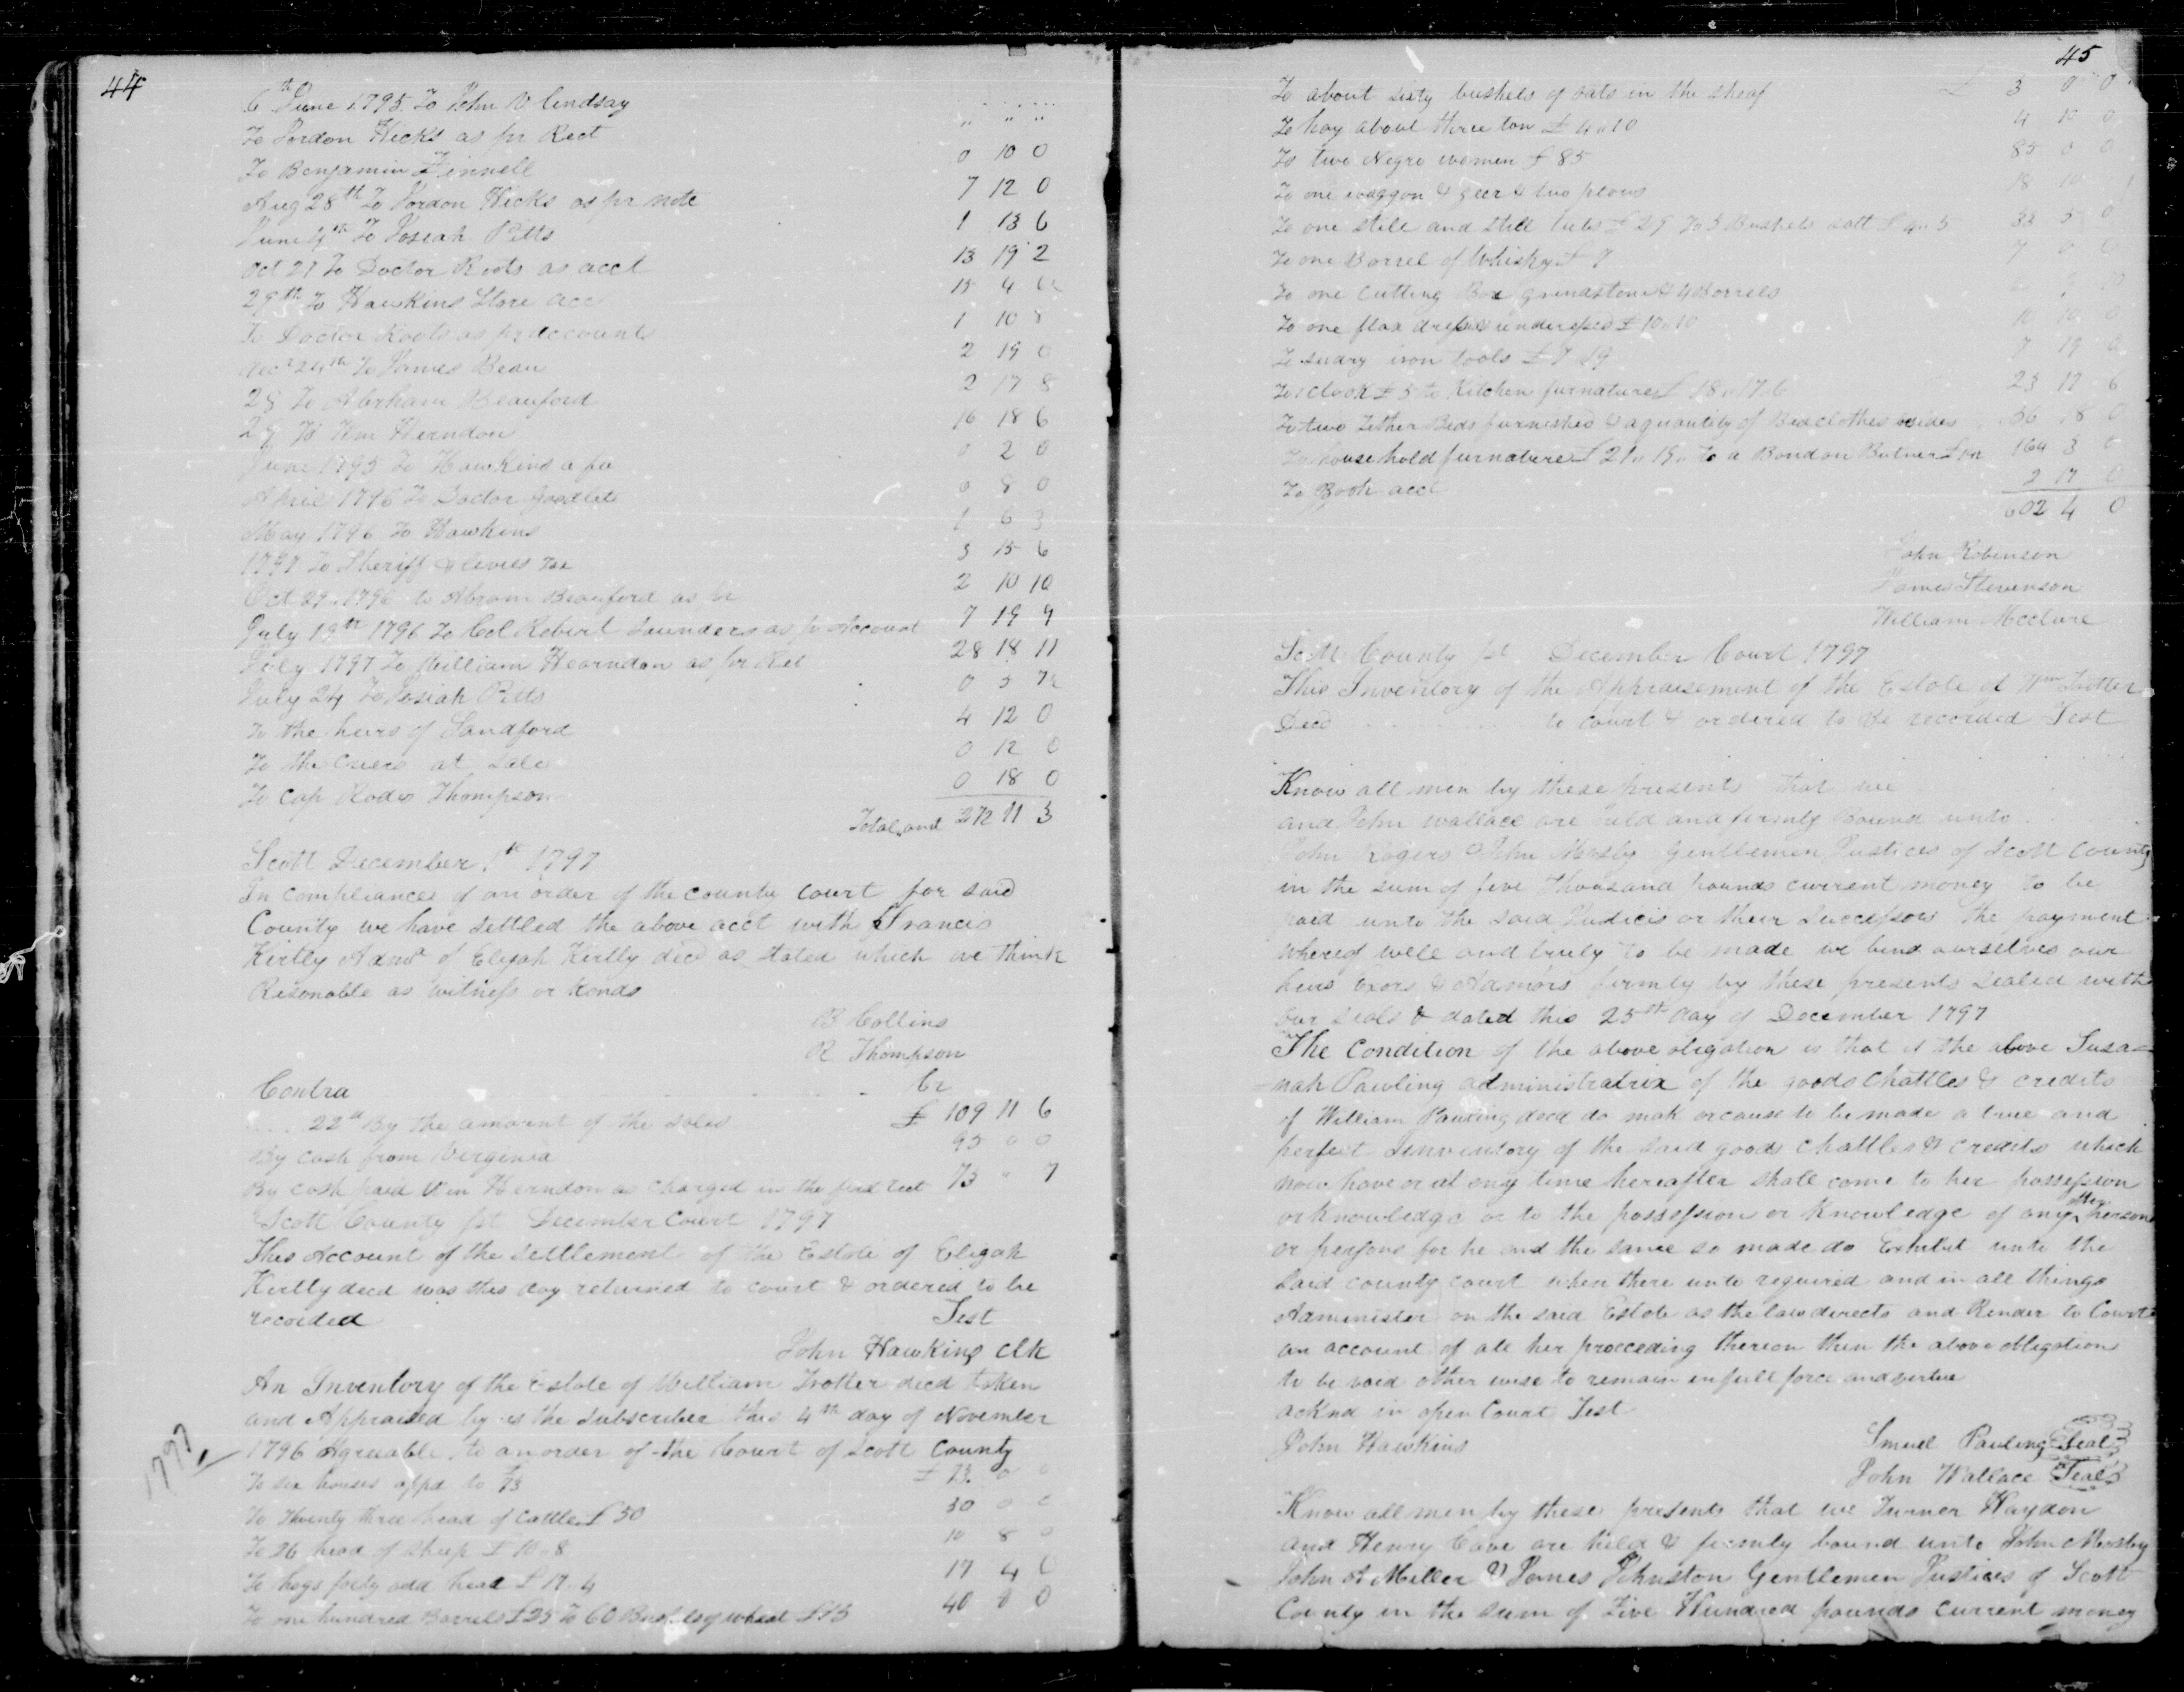 44
6th June 1795 To John V Lindsay
To Jordon Hicks as pr Rect " " "
To Benjamin Finnell 0 10 0
Aug 28th To Jordon Hicks as pr note 7 12 0
June 4th To Josiah Pitts 1 13 6
Oct 21 To Doctor Roots as acct 13 19 2
29th To Hawkins Store acc 15 4
To Doctor Roots as pr account 1 10 8
decr 24th To James Bean 2 19 0
28 To Abrham Beauford 2 17 8
29 To Wm Herndon 16 18 6
June 1795 To Hawkins a fee 0 2 0
April 1796 To Doctor Goodlet 0 8 0
May 1796 To Hawkins 1 6 3
1797 To Sheriff & levies Tax 3 15 6
Oct 27 1796 to Abram Beauford as pr 2 10 10
July 19th 1796 To Col Robert Saunders as pr Account 7 19 9
July 1797 To William Hearndon as pr Ret 28 18 11
July 24 To Josiah Pitts 0 5
To the heirs of Sandford 4 12 0
To the Criers at Sale 0 12 0
To Cap Rods Thompson 0 18 0
Total amt 272 11 3
Scott December 1st 1797
In compliances of an order of the county court for said
County we have settled the above acct with Francis
Kirtly Admr of Elijah Kirtly decd as stated which we think
Risonable as witness or hands
B Collins
R Thompson
Contra Cr
22d By the amount of the sales £ 109 11 6
By cash from Virginia 95 0 0
By cash paid Wm Herndon as charged in the first rect 73 " 7
Scott County Sct December Court 1797
This Account of the settlement of the Estate of Elijah
Kirtly decd was this day returned to court & ordered to be
recorded Test
John Hawkins Clk
An Inventory of the Estate of William Trotter decd taken
and Appraised by us the subscriber this 4th day of November
1796 Agreeable to an order of the Court of Scott County
1797
To six horses appd to 73 £ 73. 0 0
To Twenty three head of cattle £ 50 50 0 0
To 26 head of sheep £ 10 " 8 10 8 0
To hogs forty odd head £ 17 " 4 17 4 0
To one hundred Barrels £25 To 60 Bushels of wheat £15 40 0 0
45
To about sixty bushels of oats in the sheaf £ 3 0 0
To hay about three ton £ 4 " 10 4 10 0
To two Negro women £ 85 85 0 0
To one waggon & geer & two plows 18 10
To one still and still tubs £ 29 To 3 Bushels salt £ 4 " 5 33 5 0
To one Barrel of Whisky £ 7 7 0 0
To one Cutting Box grindstone & 4 Barrels
To one flax undressed £ 10 " 10 10 10 0
To sundry iron tools £ 7 " 19 7 19 0
To 1 Clock £ 5 to Kitchen furnature £ 18 " 17 " 6 23 17 6
To two Fether Beds furnished & a quantity of Bedclothes besides 56 18 0
To household furnature £ 21 " 15 " To a Bond on Butner £ 164 3 0
To Book acct 2 17 0
602 4 0
John Robinson
James Stevenson
William Mcclure
Scott County Sct December Court 1797
This Inventory of the Appraisement of the Estate of Wm Trotter
Decd to court & ordered to be recorded Test
Know all men by these presents that we
and John Wallace are held and firmly Bound unto
John Rogers & John Mosby Gentlemen Justices of Scott County
in the sum of five thousand pounds current money to be
paid unto the said Justices or their Successors the payment
whereof well and truly to be made we bind ourselves our
heirs Exors & Admors firmly by these presents sealed with
our seals & dated this 25th day of December 1797
The Condition of the above oligation is that if the above Susa=
=nah Pawling administratrix of the goods chattles & credits
of William Pauling decd do mak or cause to be made a true and
perfect Innventory of the said goods chattles & credits which
now have or at any time hereafter shall come to her possession
or knowledge or to the possession or knowledge of any other person
or persons for he and the same so made do Exhibit unto the
said county court when there unto required and in all things
Administer on the said Estate as the law directs and Render to Court
an account of all her proceeding thereon then the above obligation
to be void other wise to remain in full force and virtue
acknd in open Court Test
John Hawkins Smuel Pauling Seal
John Wallace Seal
Know all men by these presents that we Turner Haydon
and Henry Cave are held & firmly bound unto John Mosby
John A Miller & James Johnston Gentlemen Justices of Scott
County in the sum of Five Hundred pounds current money